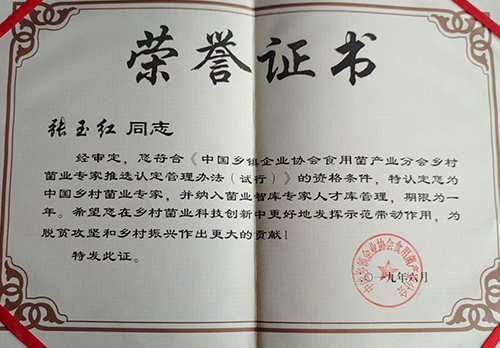 荣誉证书
张玉红 同志
经审定，您符合《中国乡镇企业协会食用菌产业分会乡村
菌业专家推选认定管理办法（试行）》的资格条件，特认定您为
中国乡村菌业专家，并纳入菌业智库专家人才库管理，期限为一
年。希望您在乡村菌业科技创新中更好地发挥示范带动作用，为
脱贫攻坚和乡村振兴作出更大的贡献！
特发此证。
中国乡镇企业协会食用菌产业分会
〇一九年六月